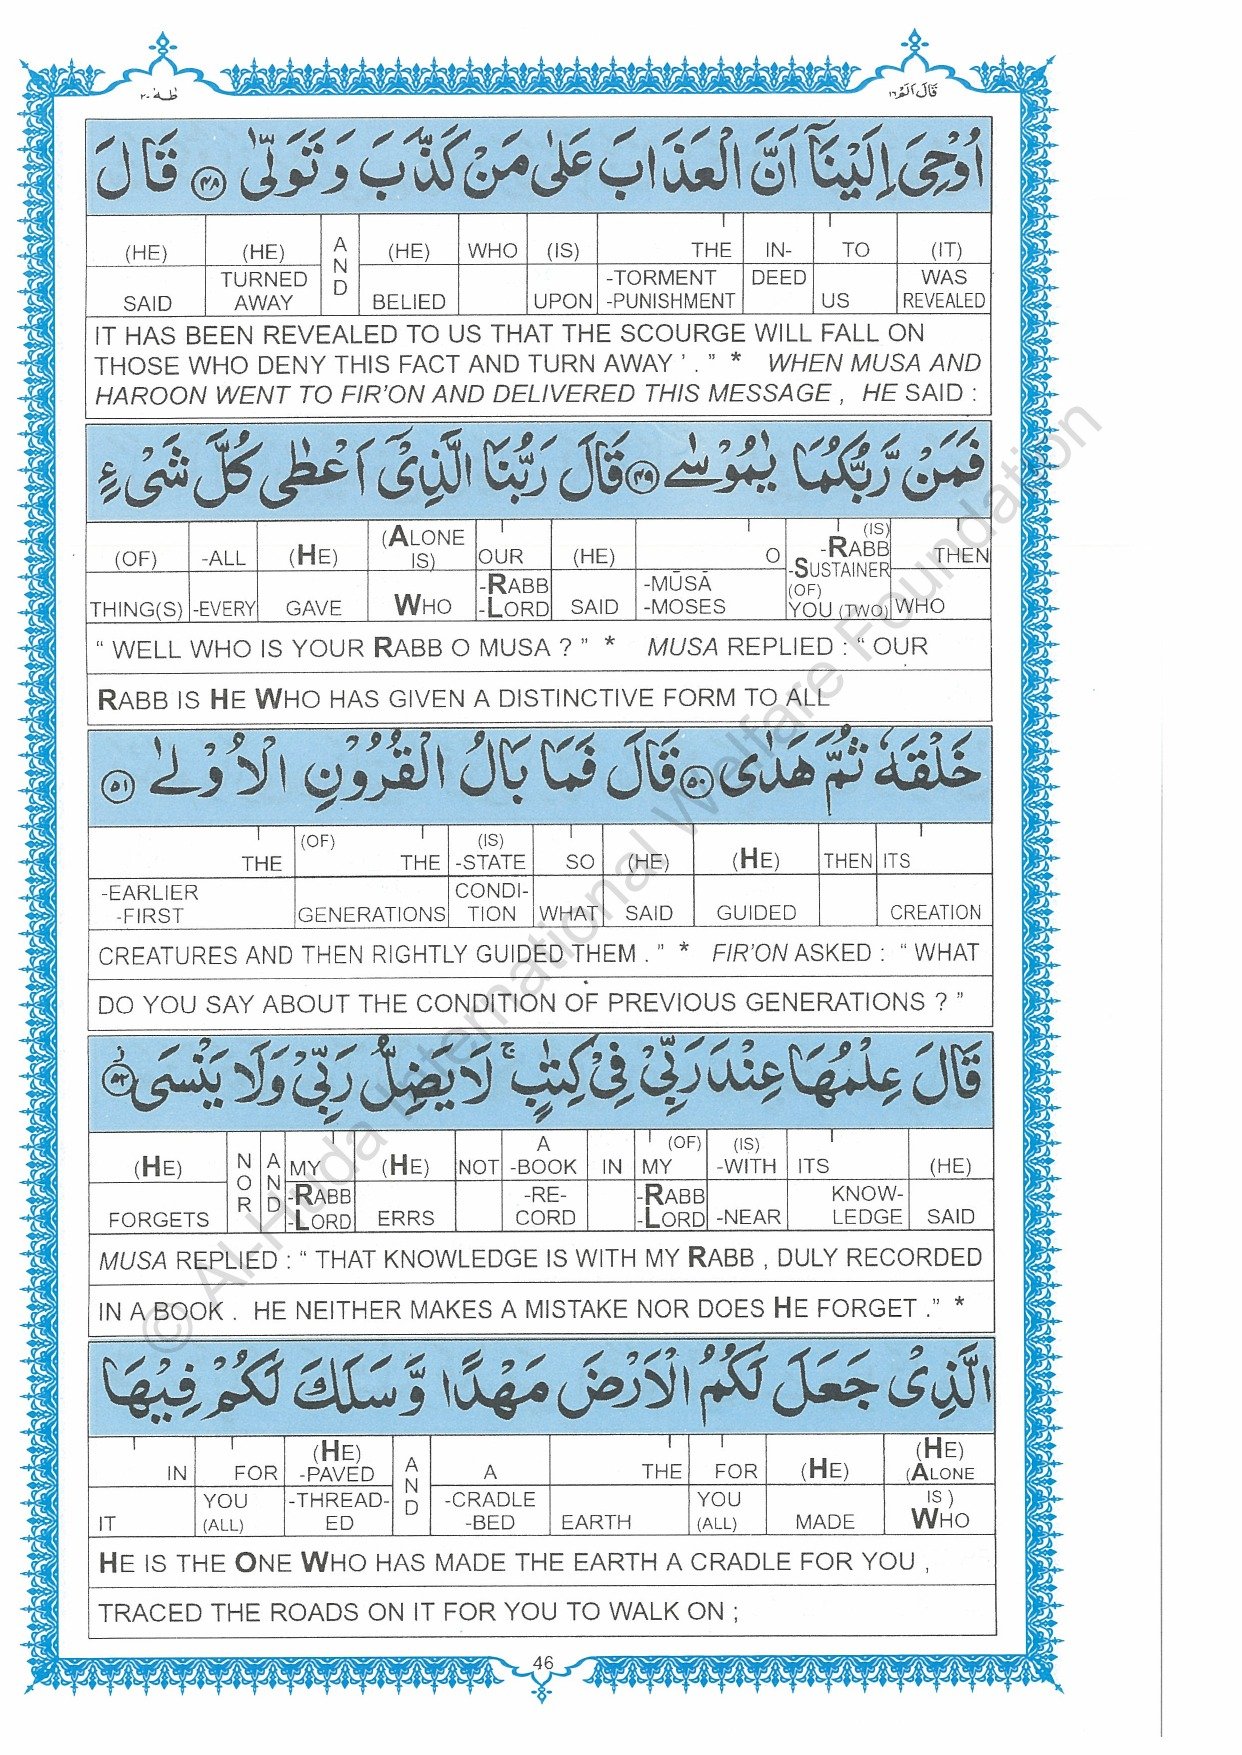 طٰهٰ ٢٠
قَالَ اَلَمْ ١٦
اُوْحِيَ اِلَيْنَاۤ اَنَّ الْعَذَابَ عَلٰى مَنْ كَذَّبَ وَ تَوَلّٰى ﴿٤٨﴾ قَالَ
(HE) (HE) AND (HE) WHO (IS) THE IN- TO (IT)
SAID TURNED AWAY BELIED UPON -TORMENT -PUNISHMENT DEED US WAS REVEALED
IT HAS BEEN REVEALED TO US THAT THE SCOURGE WILL FALL ON
THOSE WHO DENY THIS FACT AND TURN AWAY ’ . ” * WHEN MUSA AND
HAROON WENT TO FIR’ON AND DELIVERED THIS MESSAGE , HE SAID :
فَمَنْ رَّبُّكُمَا يٰمُوْسٰى ﴿٤٩﴾ قَالَ رَبُّنَا الَّذِيْۤ اَعْطٰى كُلَّ شَيْءٍ
(OF) -ALL (HE) (ALONE IS) OUR (HE) O (IS) -RABB -SUSTAINER THEN
THING(S) -EVERY GAVE WHO -RABB -LORD SAID -MŪSĀ -MOSES (OF) YOU (TWO) WHO
“ WELL WHO IS YOUR RABB O MUSA ? ” * MUSA REPLIED : “ OUR
RABB IS HE WHO HAS GIVEN A DISTINCTIVE FORM TO ALL
خَلْقَهٗ ثُمَّ هَدٰى ﴿٥٠﴾ قَالَ فَمَا بَالُ الْقُرُوْنِ الْاُوْلٰى ﴿٥١﴾
THE (OF) THE (IS) -STATE SO (HE) (HE) THEN ITS
-EARLIER -FIRST GENERATIONS CONDI- TION WHAT SAID GUIDED CREATION
CREATURES AND THEN RIGHTLY GUIDED THEM . ” * FIR’ON ASKED : “ WHAT
DO YOU SAY ABOUT THE CONDITION OF PREVIOUS GENERATIONS ? ”
قَالَ عِلْمُهَا عِنْدَ رَبِّيْ فِيْ كِتٰبٍ ۚ لَا يَضِلُّ رَبِّيْ وَلَا يَنْسَى ﴿٥٢﴾
(HE) NOR AND MY (HE) NOT A -BOOK IN MY (OF) (IS) -WITH ITS (HE)
FORGETS -RABB -LORD ERRS -RE- CORD -RABB -LORD -NEAR KNOW- LEDGE SAID
MUSA REPLIED : “ THAT KNOWLEDGE IS WITH MY RABB , DULY RECORDED
IN A BOOK . HE NEITHER MAKES A MISTAKE NOR DOES HE FORGET .” *
الَّذِيْ جَعَلَ لَكُمُ الْاَرْضَ مَهْدًا وَّ سَلَكَ لَكُمْ فِيْهَا
IN FOR (HE) -PAVED AND A THE FOR (HE) (HE) (ALONE
IT YOU (ALL) -THREAD- ED -CRADLE -BED EARTH YOU (ALL) MADE IS ) WHO
HE IS THE ONE WHO HAS MADE THE EARTH A CRADLE FOR YOU ,
TRACED THE ROADS ON IT FOR YOU TO WALK ON ;
46
© Al-Huda International Welfare Foundation